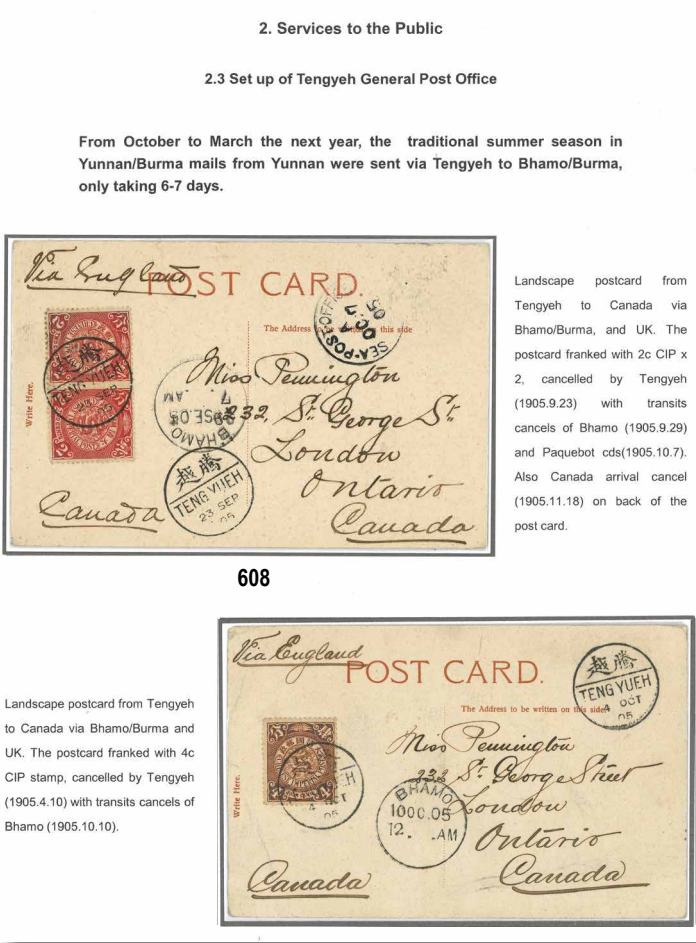 2. Services to the Public
2.3 Set up of Tengyeh General Post Office
From October to March the next year, the traditional summer season in
Yunnan/Burma mails from Yunnan were sent via Tengyeh to Bhamo/Burma,
only taking 6-7 days.
Via England
POST CARD.
The Address to be written this side
Write Here.
SEA-POST OFFICE
OC 7
05
Miss Pennington
232, St. George St.
London
Ontario
Canada
Canada
TENGYUEH
SEP
05
BHAMO
29SE.05
7 AM
騰越
TENGYUEH
23 SEP
05
Landscape postcard from
Tengyeh to Canada via
Bhamo/Burma, and UK. The
postcard franked with 2c CIP x
2, cancelled by Tengyeh
(1905.9.23) with transits
cancels of Bhamo (1905.9.29)
and Paquebot cds(1905.10.7).
Also Canada arrival cancel
(1905.11.18) on back of the
post card.
608
Landscape postcard from Tengyeh
to Canada via Bhamo/Burma and
UK. The postcard franked with 4c
CIP stamp, cancelled by Tengyeh
(1905.4.10) with transits cancels of
Bhamo (1905.10.10).
Via England
POST CARD.
The Address to be written on this side
Write Here.
騰越
TENGYUEH
4 OCT
05
Miss Pennington
232 St. George Street
London
Ontario
Canada
Canada
BHAMO
10OC.05
12. .AM